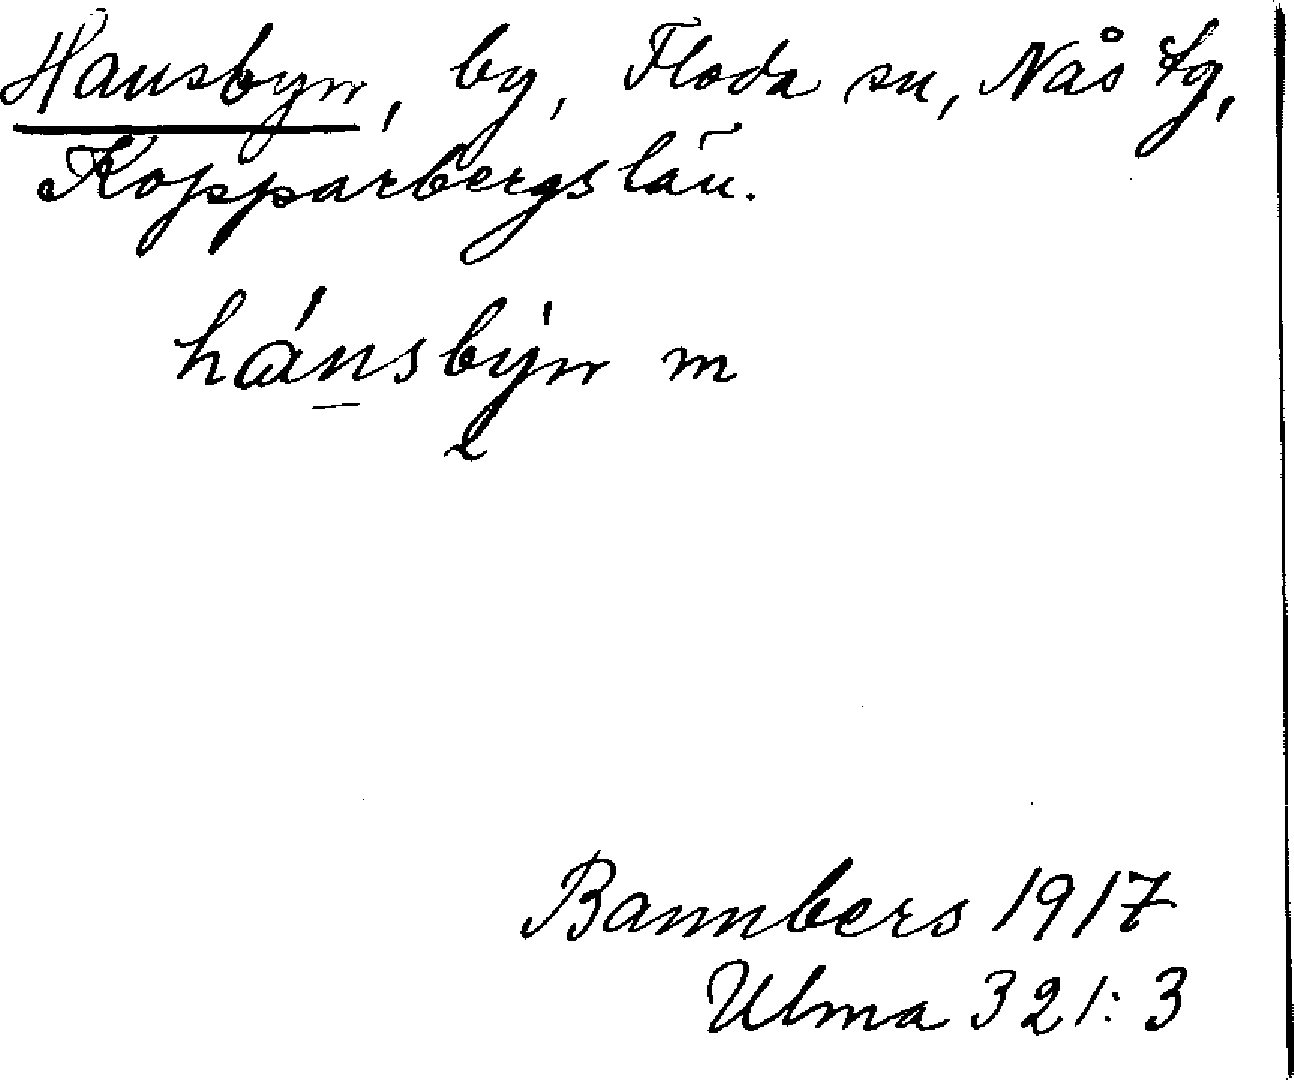 Hansbyn, by, Floda sn, Nås tg,
Kopparbergs län.
hánsbýn m
Bannbers 1917
Ulma 321:3